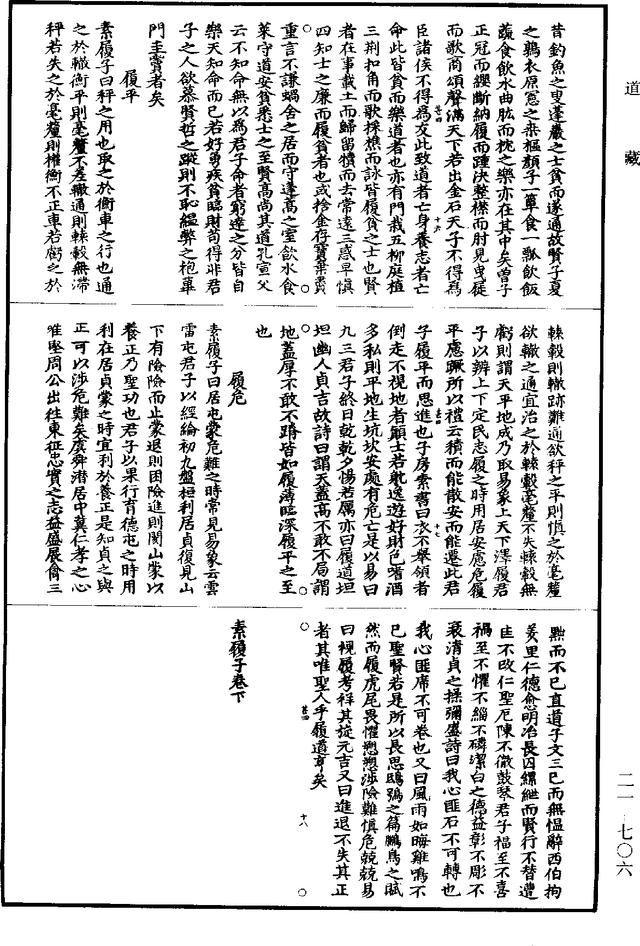 道藏
昔釣魚之叟蓬巖之士貧而遂通故賢子夏
之鶉衣原憲之桑樞顏子一簞食一瓢飲飯
蔬食飲水曲肱而枕之樂亦在其中矣曾子
正冠而纓斷納履而踵決整襟而肘見曳屣
而歌商頌聲滿天下若出金石天子不得為
臣諸侯不得為友此致道者亡身養志者亡
命此皆貧而樂道者也亦有門栽五柳庭植
三荊扣角而歌採樵而詠皆履貧之士也賢
者在事載土而歸留犢而去常遠三惑早慎
四知士之廉而履貧者也或捨金存寶棄貴
重言不謙蝸舍之居而守蓬蒿之室飲水食
菜守道安貧悉士之至賢高尚其道孔宣父
云不知命無以為君子命者窮達之分皆自
樂天知命而已若好勇疾貧臨財苟得非君
子之人欲慕賢哲之蹤則不恥縕弊之袍蓽
門圭竇者矣
履平
素履子曰秤之用也取之於衡車之行也通
之於轍衡平則毫釐不差轍通則轅轂無滯
秤若失之於毫釐則權衡不正車若虧之於
轅轂則轍跡難通欲秤之平則慎之於毫釐
欲轍之通宜治之於轅轂毫釐不失轅轂無
虧則謂天平地成乃取易象上天下澤履君
子以辨上下定民志履之時用居安慮危履
平慮蹶所以禮云積而能散安而能遷此君
子履平而思進也子房素書曰衣不舉領者
倒走不視地者顛士若躭逸遊好財色嗜酒
多私則平地生坑坎安處有危亡是以易曰
九三君子終日乾乾夕惕若厲亦曰履道坦
坦幽人貞吉故詩曰謂天蓋高不敢不局謂
地蓋厚不敢不蹐皆如履薄臨深履平之至
也
履危
素履子曰居屯蒙危難之時常見易象云雲
雷屯君子以經綸初九盤桓利居貞復見山
下有險險而止蒙退則困險進則閡山蒙以
養正乃聖功也君子以果行育德屯之時用
利在居貞蒙之時宜利於養正是知貞之與
正可以涉危難矣虞舜潛居中冀仁孝之心
維堅周公出往東征忠實之志益盛展禽三
黜而不已直道子文三已而無慍辭西伯拘
羑里仁德愈明冶長囚縲紲而賢行不替遭
匡不改仁聖厄陳不徹鼓琴君子福至不喜
禍至不懼不緇不磷潔白之德益彰不彫不
衰清貞之操彌盛詩曰我心匪石不可轉也
我心匪席不可卷也又曰風雨如晦雞鳴不
已聖賢若是所以長思鴟鴞之篇鵬鳥之賦
然而履虎尾畏懼愬愬涉險難慎危兢兢易
曰視履考祥其旋元吉又曰進退不失其正
者其唯聖人乎履道亨矣
素履子卷下
甚四
十六
甚四
十七
甚四
十八
二一
七〇六